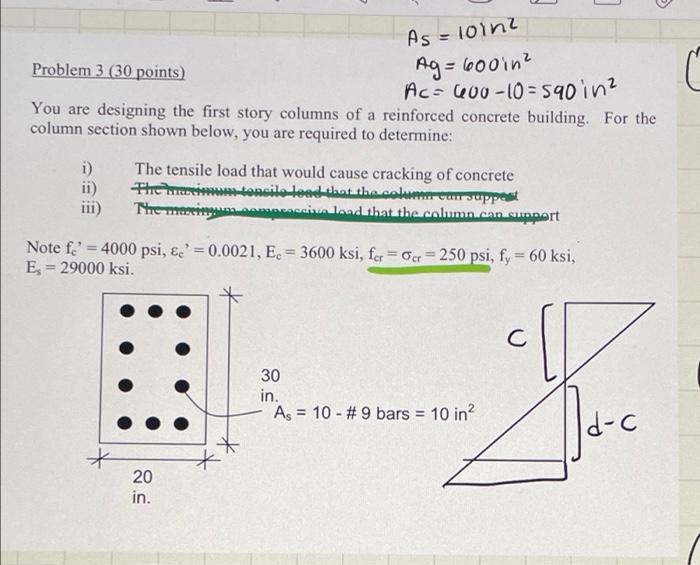 As = 10in²
Ag = 600in²
Ac = 600 - 10 = 590in²
Problem 3 (30 points)
You are designing the first story columns of a reinforced concrete building. For the
column section shown below, you are required to determine:
i) The tensile load that would cause cracking of concrete
ii) The maximum tensile load that the column can support
iii) The maximum compressive load that the column can support
Note fc' = 4000 psi, εc' = 0.0021, Ec = 3600 ksi, fcr = σcr = 250 psi, fy = 60 ksi,
Es = 29000 ksi.
C
30
in.
As = 10 - # 9 bars = 10 in²
d-c
20
in.